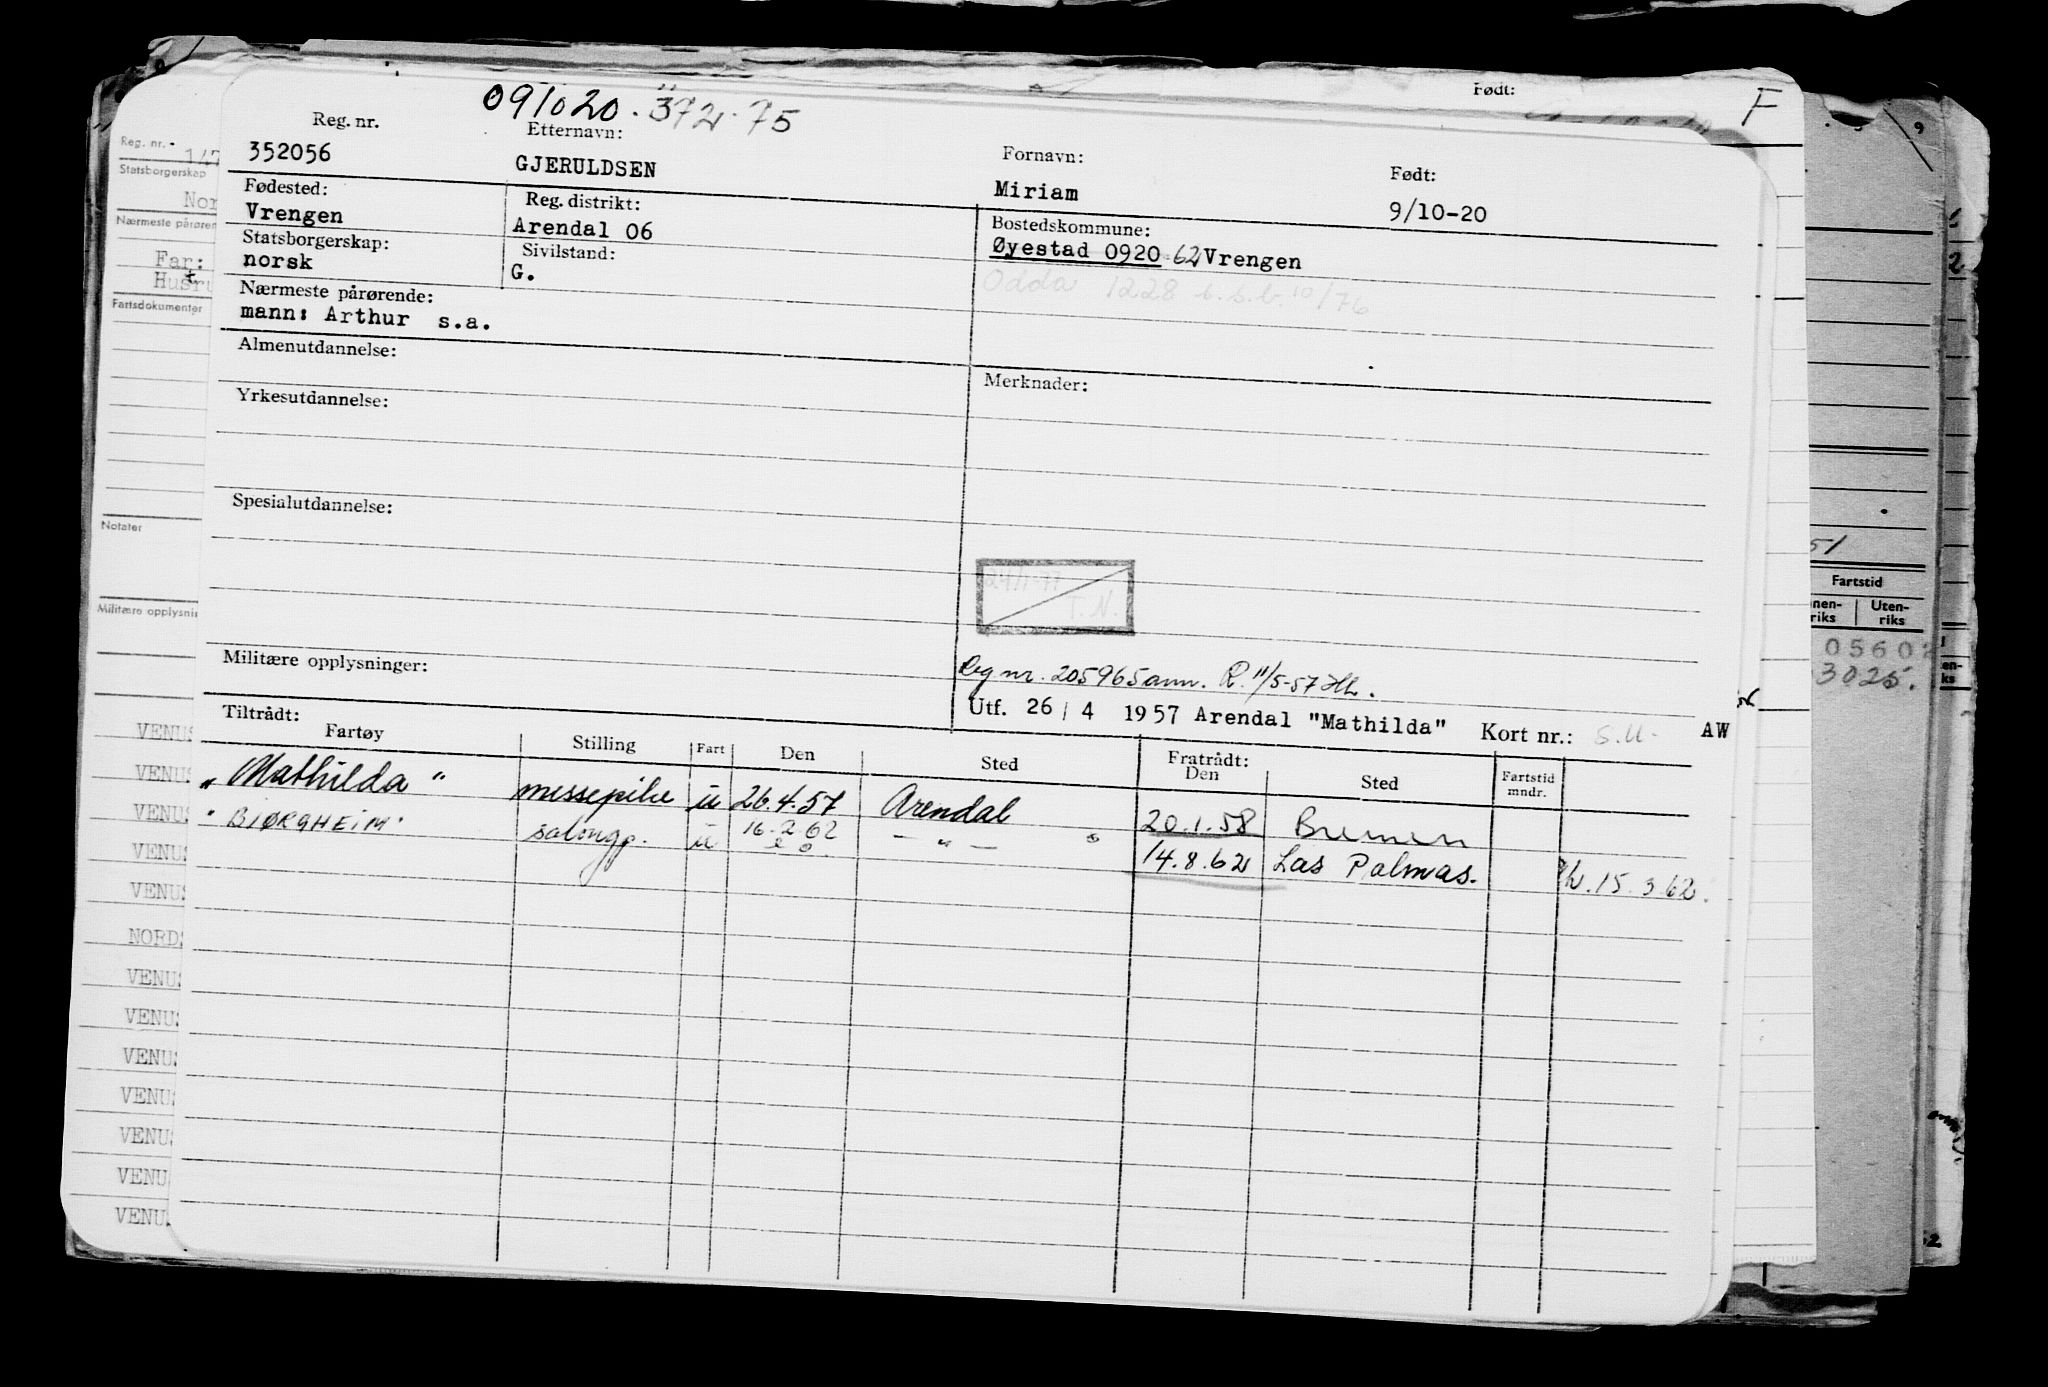 Født:
F
091020.37275
Reg. nr.
352056
Etternavn:
GJERULDSEN
Fornavn:
Miriam
Født:
9/10-20
Fødested:
Vrengen
Reg. distrikt:
Arendal 06
Bostedskommune:
Øyestad 0920 62 Vrengen
Odda 1228 b.s.b. 10/76
Statsborgerskap:
norsk
Sivilstand:
G.
Nærmeste pårørende:
mann: Arthur s.a.
Almenutdannelse:
Merknader:
Yrkesutdannelse:
Spesialutdannelse:
T.N.
Militære opplysninger:
Reg nr. 205965 ann. R. 11/5-57
Utf. 26/4 1957 Arendal "Mathilda" Kort nr.: S.U. AW
Tiltrådt:
Fartøy Stilling Fart Den Sted Fratrådt: Den Sted Fartstid mndr.
"Mathilda" messepike u 26.4.57 Arendal 20.1.58 Bremen
"BJØRGHEIM" salongp. u 16.2.62 — " — 14.8.62 Las Palmas. 15.3.62.
Reg. nr.
147
Statsborgerskap
Nor
Nærmeste pårøren
Far:
Hustru
Fartsdokumenter
Notater
Militære opplysnin
VENUS
VENUS
VENUS
VENUS
VENUS
NORDS
VENUS
VENUS
VENUS
VENUS
VENUS
VENU
VENUS
51
Fartstid
nen-
riks
Uten-
riks
05602
3025.